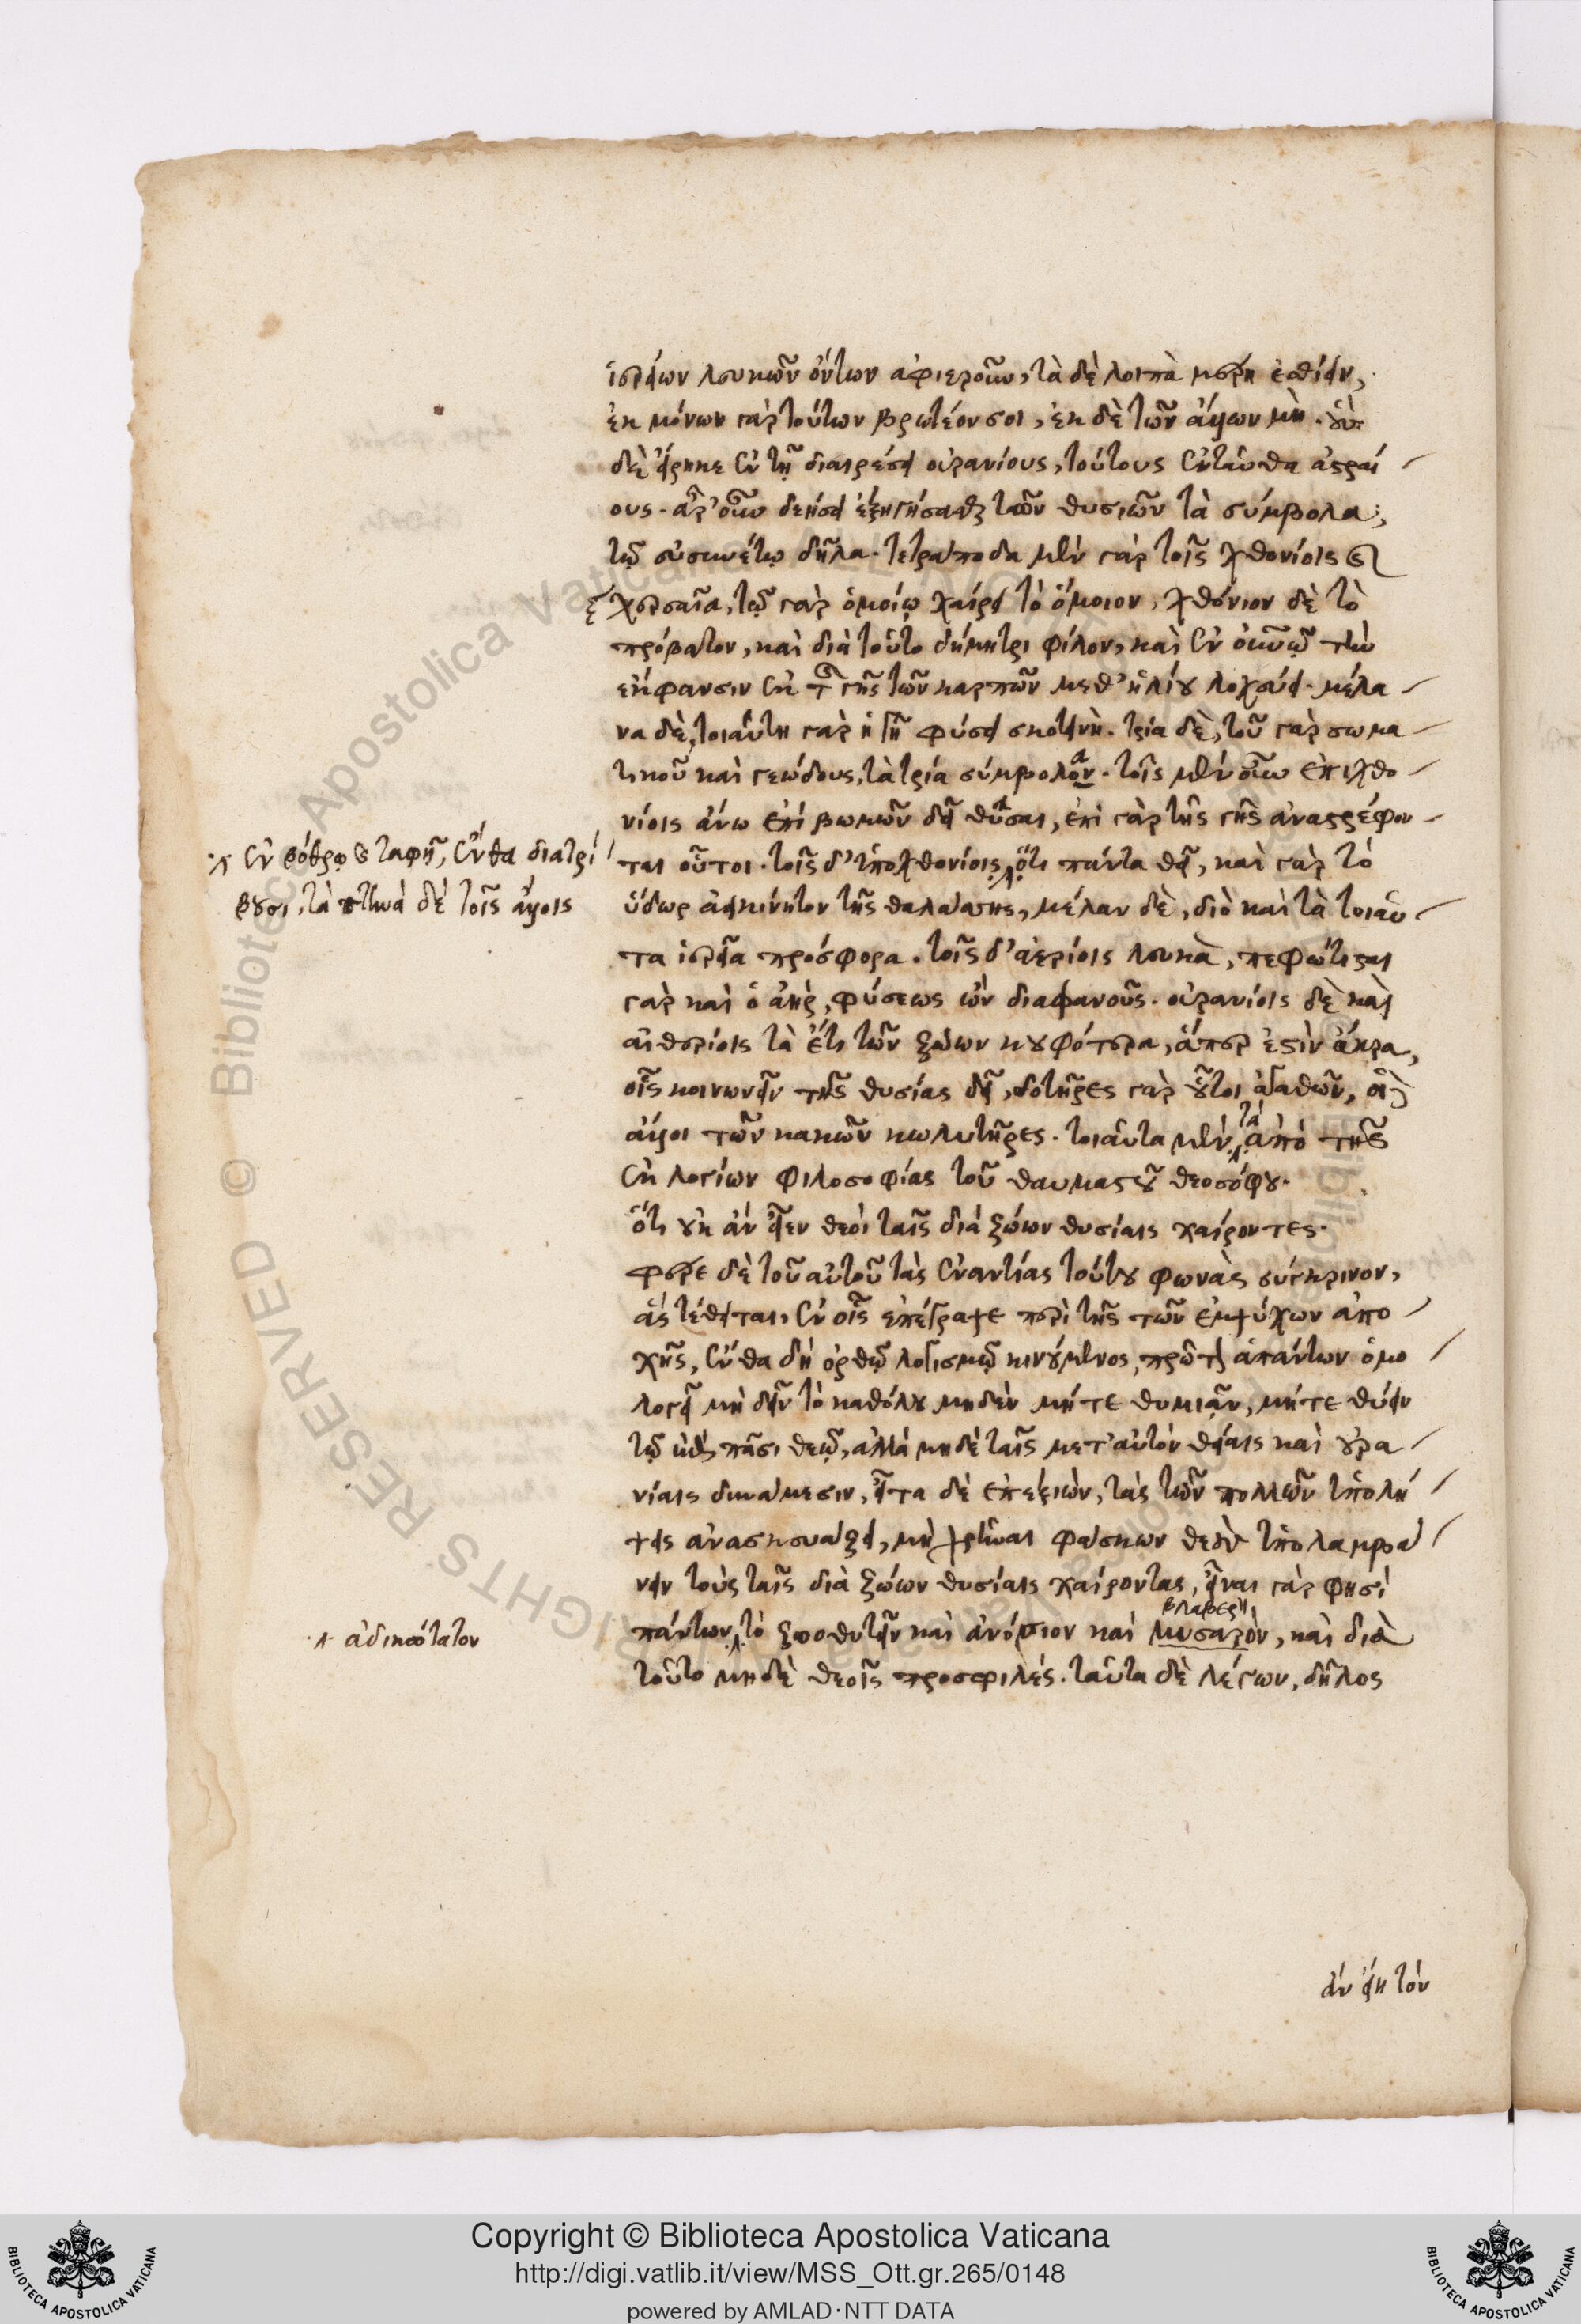 ἱερείων λευκῶν ὄντων ἀφιεροῦν, τὰ δὲ λοιπὰ μέρη ἐσθίειν,
ἐκ μόνων γὰρ τούτων βρωτέον σοι, ἐκ δὲ τῶν ἄλλων μὴ. οὓς
δὲ εἴρηκε ἐν τῇ διαιρέσει οὐρανίους, τούτους ἐνταῦθα ἀστραί
ους. ἆρ' οὖν δεήσει ἐξηγήσασθαι τῶν θυσιῶν τὰ σύμβολα;
τῷ εὐσυνέτῳ δῆλα. τετράποδα μὲν γὰρ τοῖς χθονίοις
χερσαῖα, τῷ γὰρ ὁμοίῳ χαίρει τὸ ὅμοιον, χθόνιον δὲ τὸ
πρόβατον, καὶ διὰ τοῦτο δήμητρι φίλον, καὶ ἐν οὐρανῷ τὴν
ἔκφανσιν ἐκ τῆς γῆς τῶν καρπῶν μεθ' ἡλίου λοχεύει. μέλα
να δὲ, τοιαύτη γὰρ ἡ γῆ φύσει σκοτεινὴ. τρία δὲ, τοῦ γὰρ σωμα
τικοῦ καὶ γεώδους, τὰ τρία σύμβολον. τοῖς μὲν οὖν ἐπιχθο
νίοις ἄνω ἐπὶ βωμῶν δεῖ θῦσαι, ἐπὶ γὰρ τῆς γῆς ἀναστρέφον
ται οὗτοι. τοῖς δ' ὑποχθονίοις, ὅτι πάντα θεῖ, καὶ γὰρ τό
ἐν βόθρῳ καὶ ταφῇ, ἔνθα διατρί
βουσι, τὰ πτηνά δὲ τοῖς ἄλλοις
ὕδωρ ἀεικίνητον τῆς θαλάσσης, μέλαν δὲ, διὸ καὶ τὰ τοιαῦ
τα ἱερεῖα πρόσφορα. τοῖς δ' ἀερίοις λευκὰ, πεφώτισται
γὰρ καὶ ὁ ἀὴρ, φύσεως ὢν διαφανοῦς. οὐρανίοις δὲ καὶ
αἰθερίοις τὰ ἔτι τῶν ζώων κουφότερα, ἅπερ ἐστὶν ἄκρα,
οἷς κοινωνεῖν τῆς θυσίας δεῖ, δοτῆρες γὰρ οὗτοι ἀγαθῶν, οἱ δὲ
ἄλλοι τῶν κακῶν κωλυτῆρες. τοιαῦτα μὲν τὰ ἀπὸ τῆς
ἐκ λογίων φιλοσοφίας τοῦ θαυμαστοῦ θεοσόφου.
ὅτι οὐκ ἂν εἶεν θεοὶ ταῖς διὰ ζώων θυσίαις χαίροντες.
φέρε δὲ τοῦ αὐτοῦ τὰς ἐναντίας τούτου φωνὰς σύγκρινον,
ἃς τέθειται, ἐν οἷς ἐπέγραψε περὶ τῆς τῶν ἐμψύχων ἀπο
χῆς, ἔνθα δὴ ὀρθῷ λογισμῷ κινούμενος, πρῶτον ἁπάντων ὁμο
λογεῖ μὴ δεῖν τὸ καθόλου μηδὲν μήτε θυμιᾶν, μήτε θύειν
τῷ ἐπὶ πᾶσι θεῷ, ἀλλὰ μηδὲ ταῖς μετ' αὐτὸν θείαις καὶ οὐρα
νίαις δυνάμεσιν, εἶτα δὲ ἐπεξιὼν, τὰς τῶν πολλῶν ὑπολή
ψεις ἀνασκευάζει, μὴ χρῆναι φάσκων θεοὺς ὑπολαμβά
νειν τοὺς ταῖς διὰ ζώων θυσίαις χαίροντας, εἶναι γὰρ φησὶ
βλαβερὸν
ἀδικώτατον
πάντων, τὸ ζωοθυτεῖν καὶ ἀνόσιον καὶ μυσαρὸν, καὶ διὰ
τοῦτο μηδὲ θεοῖς προσφιλές. ταῦτα δὲ λέγων, δῆλος
ἂν εἴη τὸν
Copyright © Biblioteca Apostolica Vaticana
http://digi.vatlib.it/view/MSS_Ott.gr.265/0148
powered by AMLAD·NTT DATA